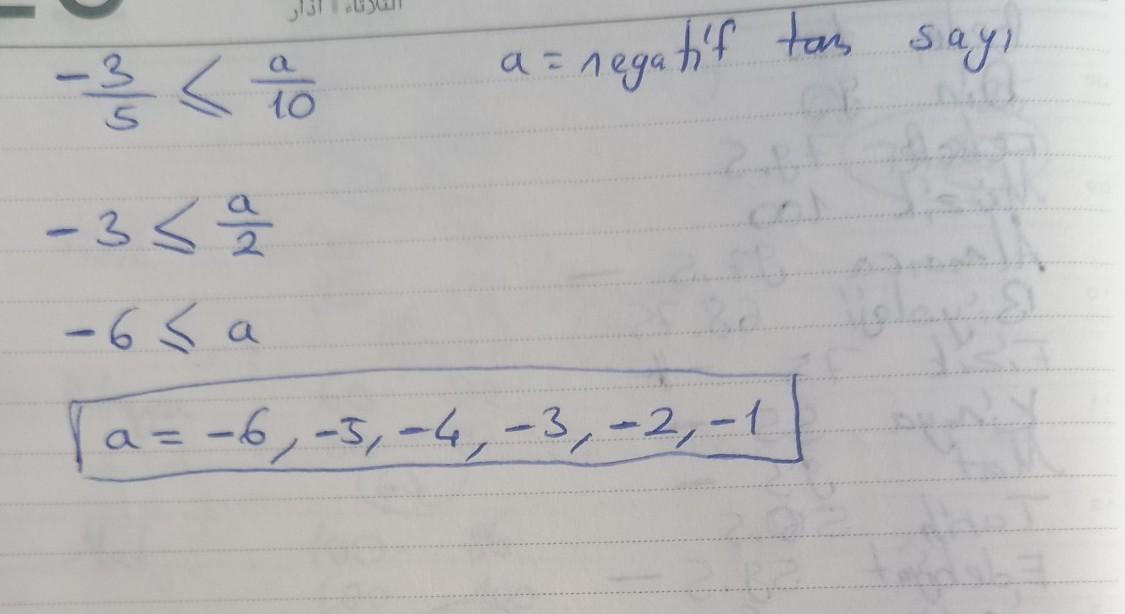 -3/5 ≤ a/10 a = negatif tam sayı
-3 ≤ a/2
-6 ≤ a
a = -6, -5, -4, -3, -2, -1